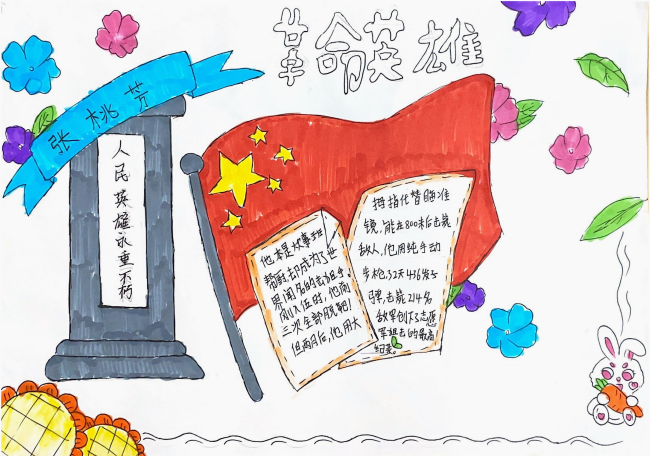 革命英雄
张桃芳
人民英雄永垂不朽
他本是炊事班
帮厨,却成为了世
界闻名的手
刚入伍时,他两
三次全部脱靶!
但两月后,他用大
拇指代替瞄准
镜,能在800米后击毙
敌人,他用纯手动
步枪,32天436发子
弹,击毙214名
敌军创下了志愿
军狙击的最高
纪录。